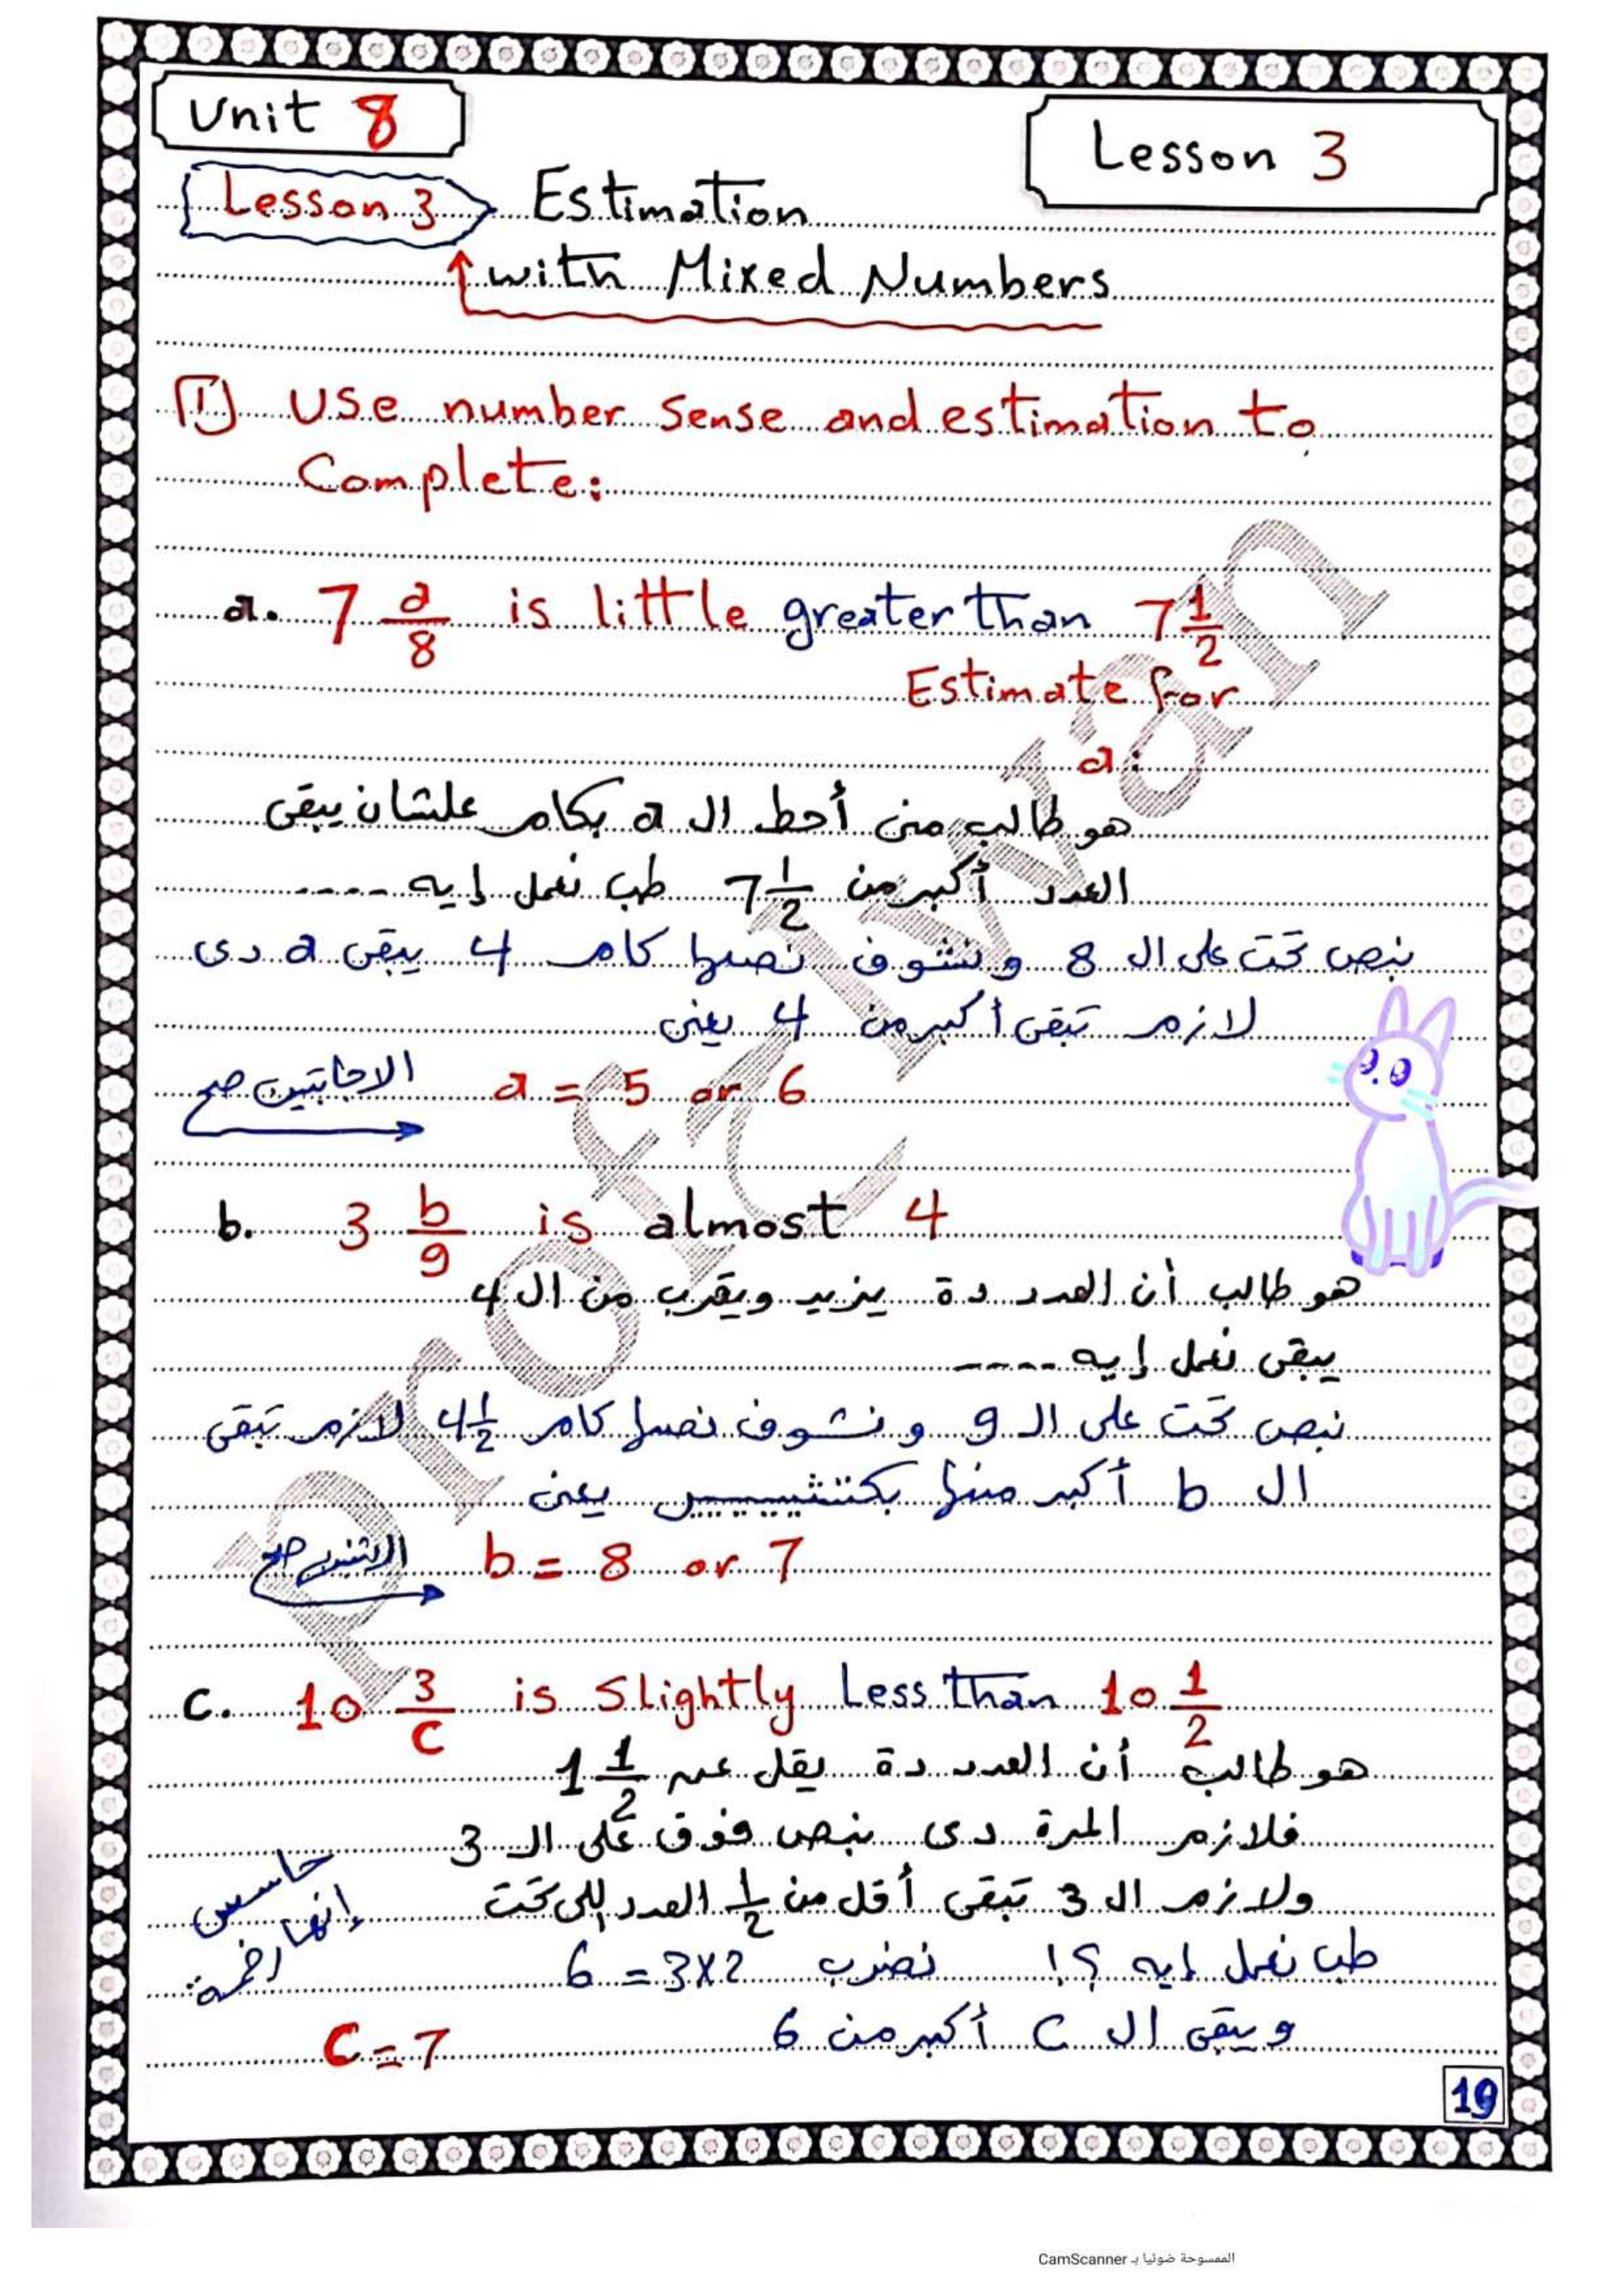 Unit 8
Lesson 3
Lesson 3 Estimation
with Mixed Numbers
1 Use number sense and estimation to
Complete:
a. 7 a/8 is little greater than 7 1/2
Estimate for
a:
هو طالب منى أحط ال a بكام علشان يبقى
العدد أكبر من 7 1/2 طب نعمل إيه ----
نبص تحت على ال 8 ونشوف نصها كام 4 يبقى a دى
لازم تبقى أكبر من 4 يعنى
a = 5 or 6 الاجابتين صح
b. 3 b/9 is almost 4
هو طالب أن العدد دة يزيد ويقرب من ال 4
يبقى نعمل إيه ----
نبص تحت على ال 9 ونشوف نصها كام 4 1/2 لازم تبقى
ال b أكبر منها بكتتتيييييير يعنى
b = 8 or 7 الاتنين صح
c. 10 3/c is slightly Less than 10 1/2
هو طالب أن العدد دة يقل عن 1 1/2
فلازم المرة دى نبص فوق على ال 3
ولازم ال 3 تبقى أقل من 1/2 العدد اللى تحت
طب نعمل إيه ؟! نضرب 2x3 = 6
ويبقى ال C أكبر من 6
C = 7
حاسس
إنها
19
Profz Ivan
الممسوحة ضوئيا بـ CamScanner